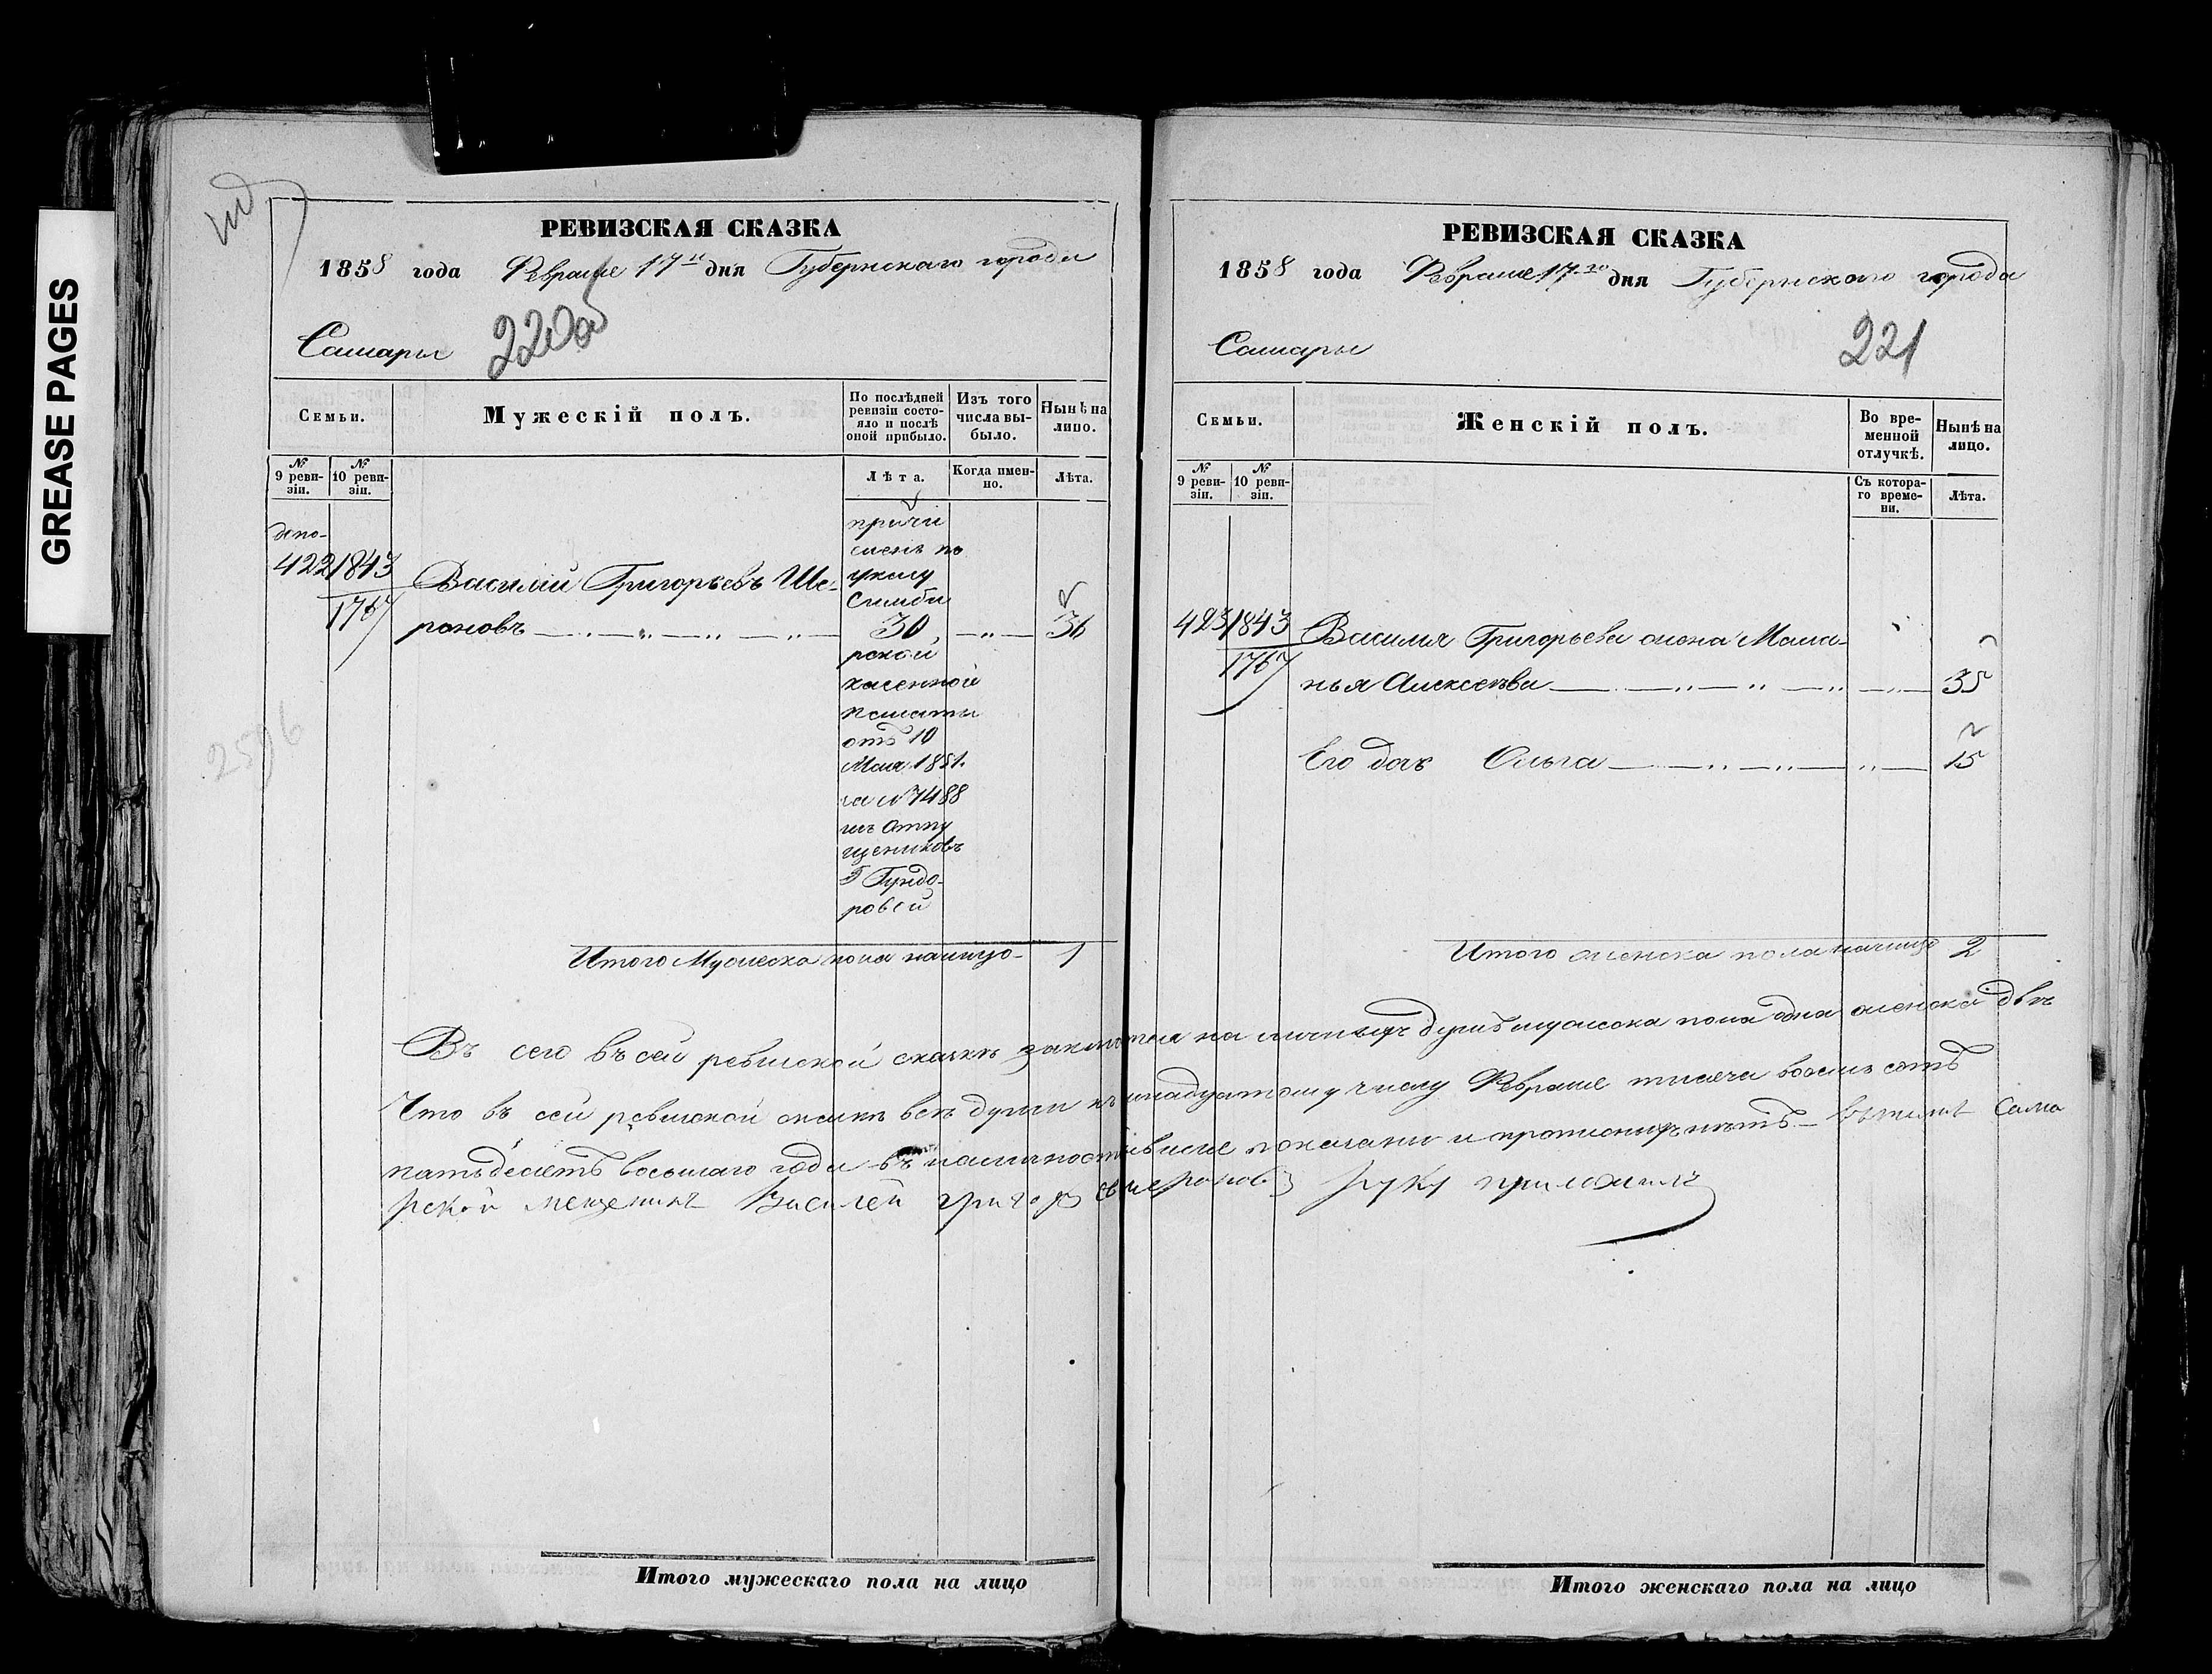 GREASE PAGES
РЕВИЗСКАЯ СКАЗКА
1858 года Февраля 17го дня Губернскаго города
Самары 220об
Семьи.
Мужескій полъ.
По послѣдней ревизіи состояло и послѣ оной прибыло.
Изъ того числа выбыло.
Нынѣ на лицо.
№ 9 ревизіи.
№ 10 ревизіи.
Лѣта.
Когда именно.
Лѣта.
422 1843
1767
Василій Григорьевъ Ше-
роновъ 30 36
причи
сленъ по
указу
Симби
рской
казенной
палаты
отъ 10
Мая 1851.
за №7488
изъ отпу
щениковъ
Гундо-
ровой
2596
Итого Мужеска пола налицо 1
РЕВИЗСКАЯ СКАЗКА
1858 года Февраля 17го дня Губернскаго города
Самары 221
Семьи.
Женскій полъ.
Во временной отлучкѣ.
Нынѣ на лицо.
№ 9 ревизіи.
№ 10 ревизіи.
Съ котораго времени.
Лѣта.
423 1843
1767
Василья Григорьева жена Мала-
нья Алексеева 35
Его дочь Ольга 15
Итого женска пола налицо 2
Въ сего въ сей ревиской скаскѣ наличныхъ душъ мужеска пола одна женска двѣ
Что въ сей ревиской скаскѣ всѣ души числу Февраля тысяча восемь сотъ
пятьдесятъ восьмаго года въ наличности показаны и прописныхъ нѣтъ Сама
рской мещенинъ Василей григорьевъ шероновъ руку приложилъ
Итого мужескаго пола на лицо
Итого женскаго пола на лицо